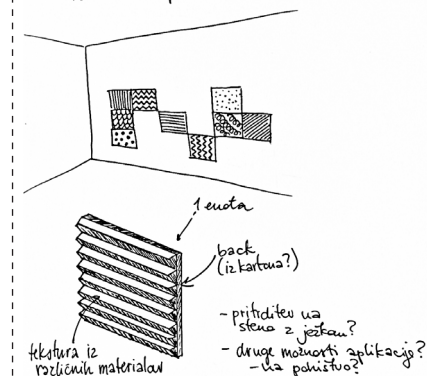 1 enota
back
(iz kartona?)
tekstura iz
različnih materialov
- pritrditev na
steno z ježkom?
- druge možnosti aplikacije?
- na pohištvo?